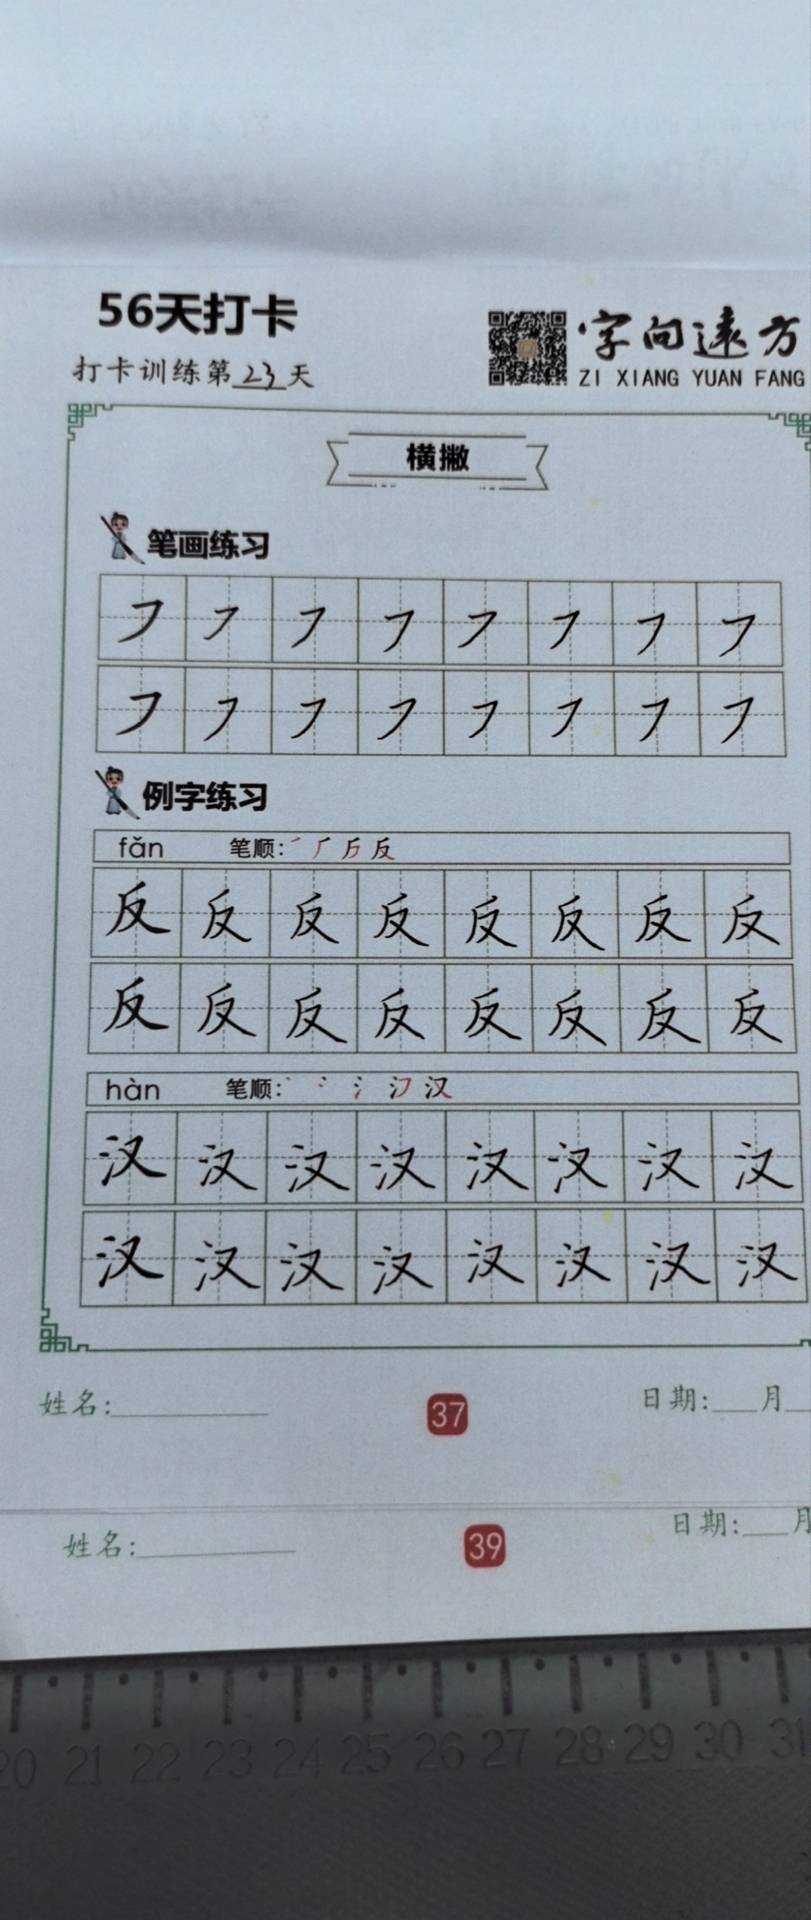 56天打卡
字向远方
打卡训练第23天
ZI XIANG YUAN FANG
横撇
笔画练习
㇇ ㇇ ㇇ ㇇ ㇇ ㇇ ㇇ ㇇
㇇ ㇇ ㇇ ㇇ ㇇ ㇇ ㇇ ㇇
例字练习
fǎn 笔顺: 反
反 反 反 反 反 反 反 反
反 反 反 反 反 反 反 反
hàn 笔顺: 汉
汉 汉 汉 汉 汉 汉 汉 汉
汉 汉 汉 汉 汉 汉 汉 汉
姓名: 37 日期: 月
姓名: 39 日期: 月
20 21 22 23 24 25 26 27 28 29 30 31